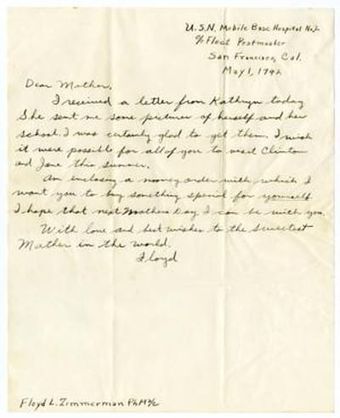 U.S.N. Mobile Base Hospital No. 2
c/o Fleet Postmaster
San Francisco, Cal.
May 1, 1942
Dear Mother,
I received a letter from Kathryn today
She sent me some pictures of herself and her
school. I was certainly glad to get them. I wish
it were possible for all of you to visit Clinton
and Jane this summer.
Am enclosing a money order with which I
want you to buy something special for yourself.
I hope that next Mothers Day I can be with you.
With love and best wishes to the sweetest
Mother in the world.
Floyd
Floyd L. Zimmerman PhM